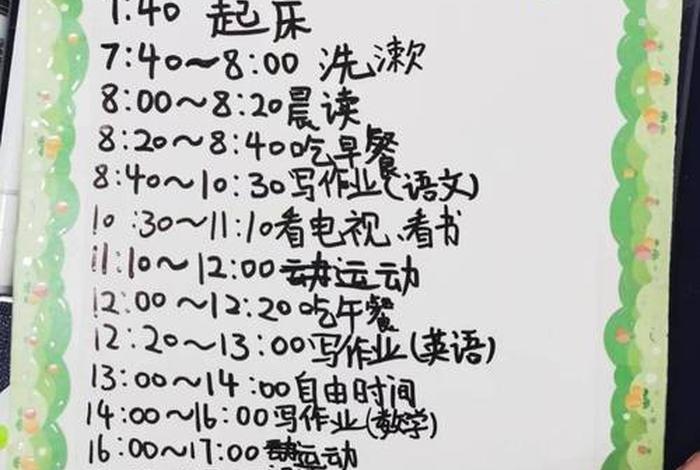 7:40 起床
7:40~8:00 洗漱
8:00~8:20晨读
8:20~8:40吃早餐
8:40~10:30写作业(语文)
10:30~11:10看电视、看书
11:10~12:00 运动
12:00~12:20吃午餐
12:20~13:00写作业(英语)
13:00~14:00自由时间
14:00~16:00写作业(数学)
16:00~17:00 运动